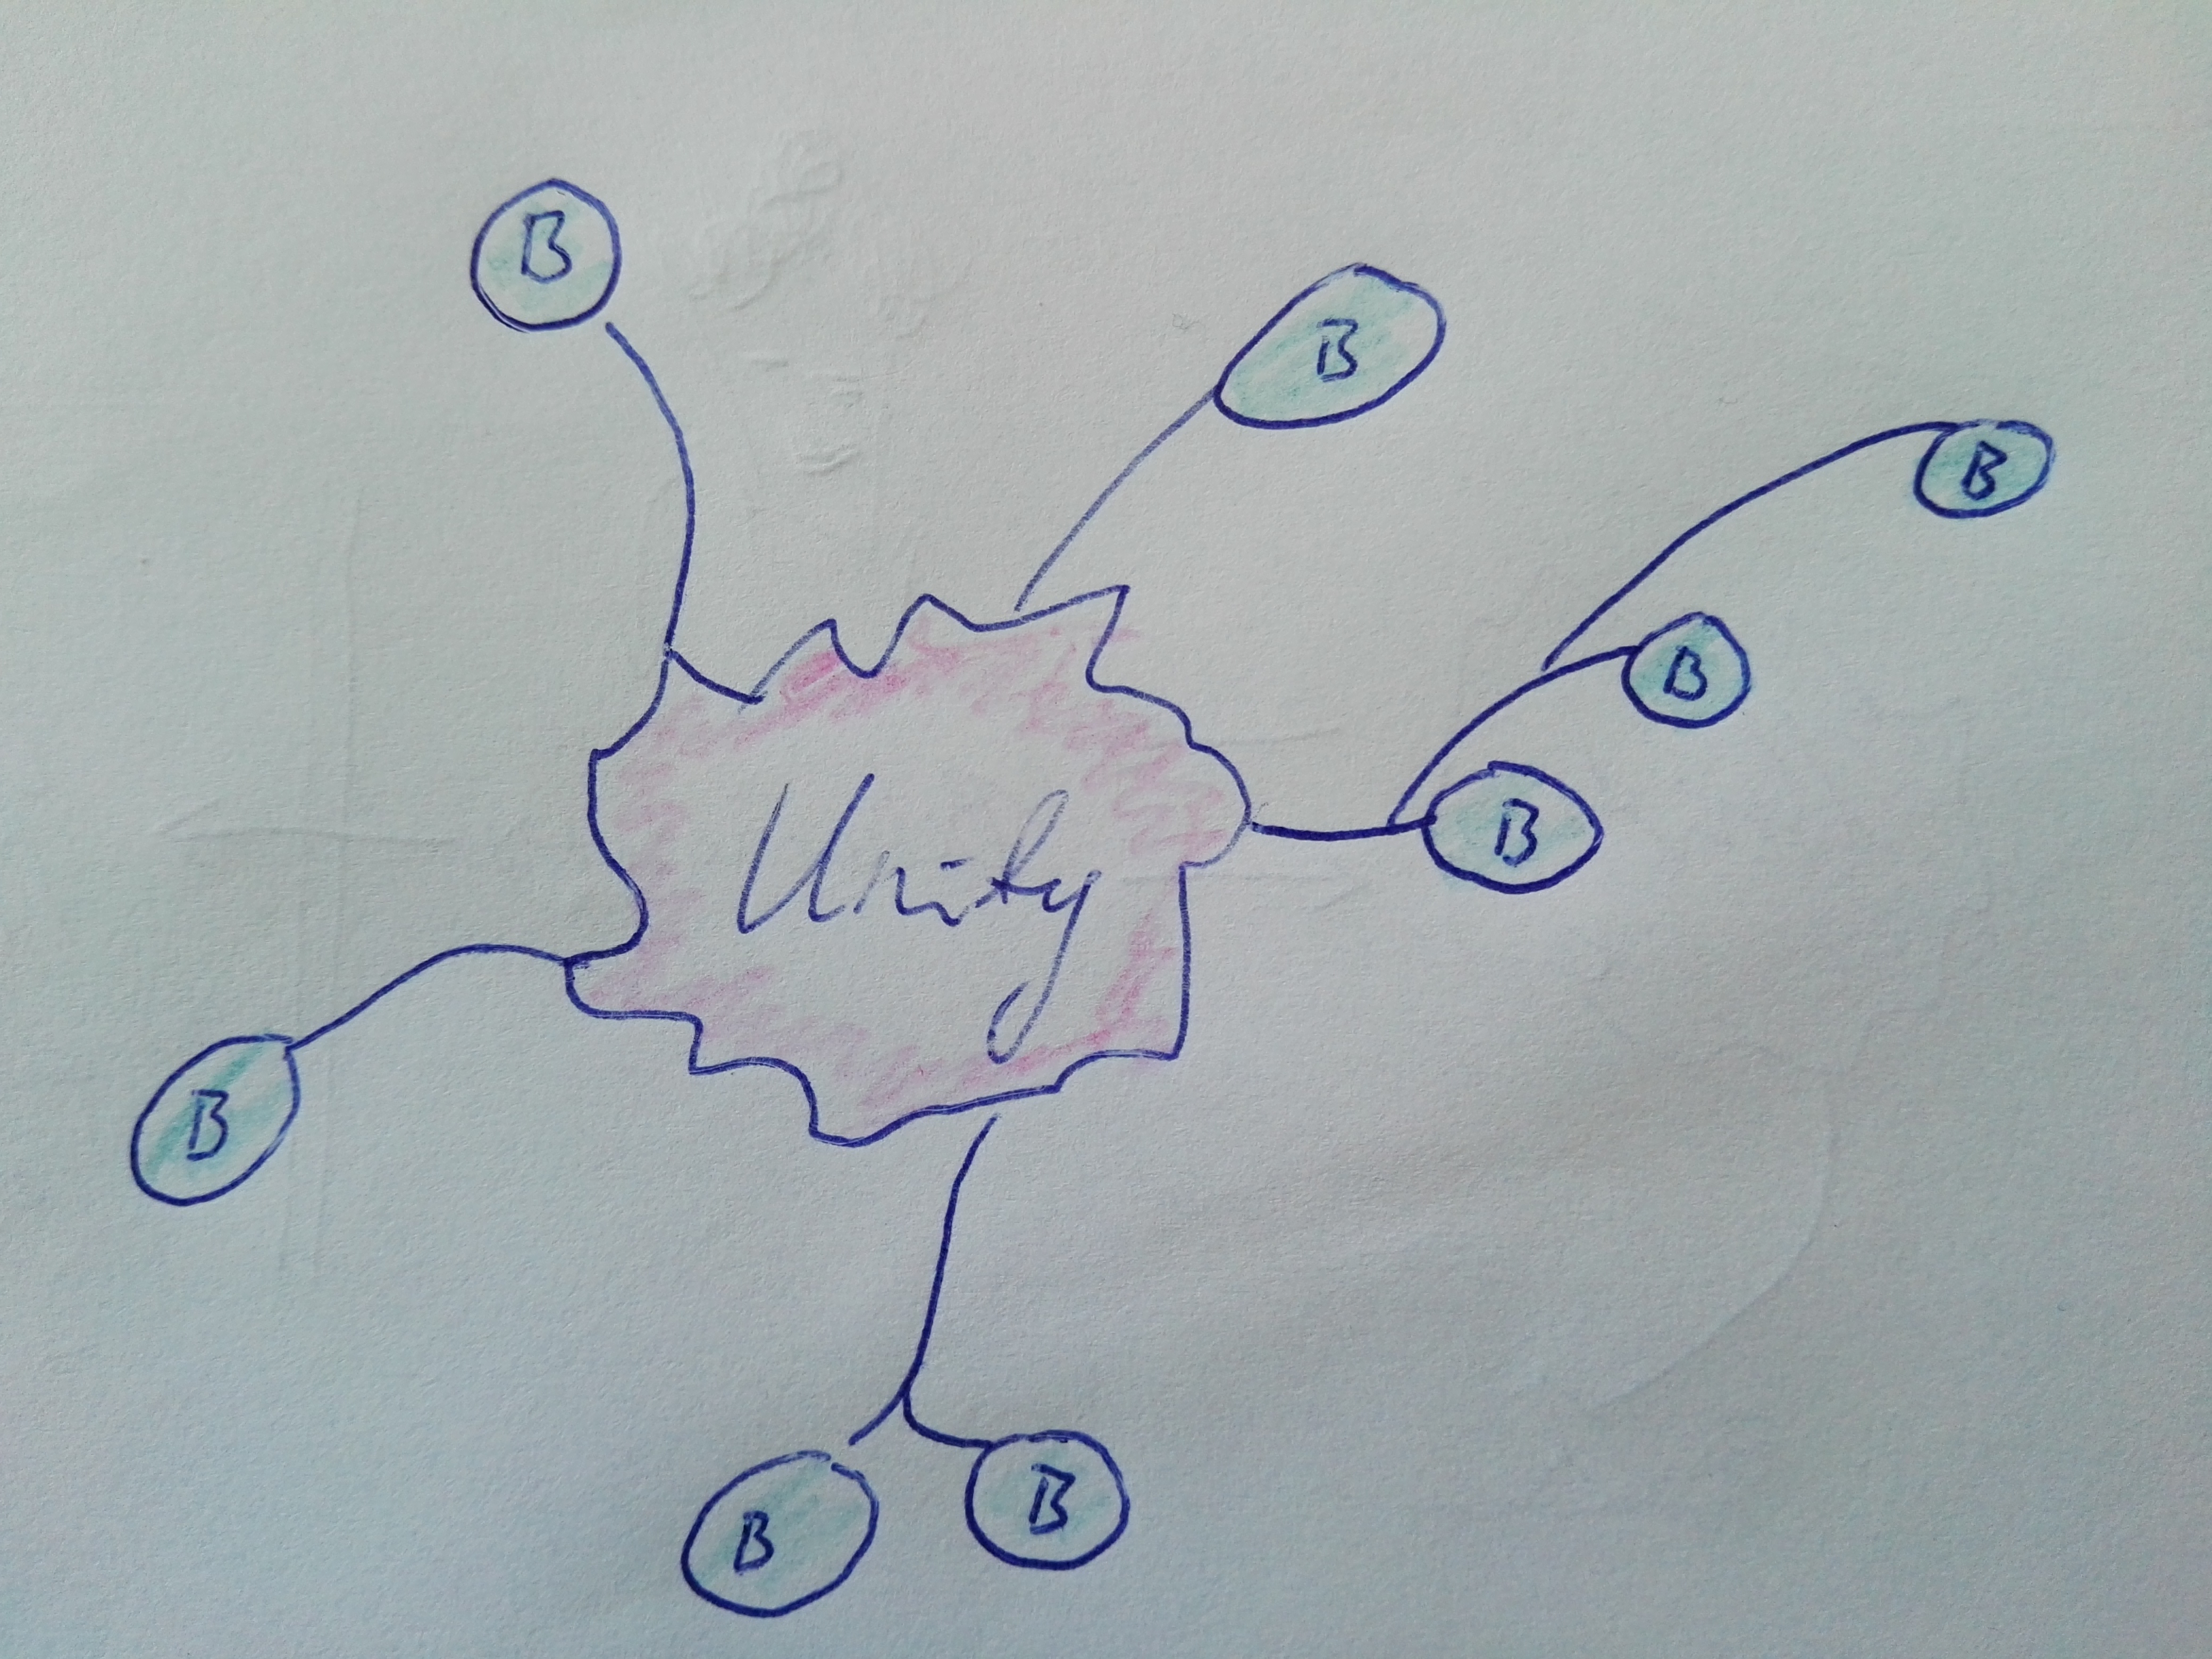 B
B
B
B
B
Unity
B
B
B